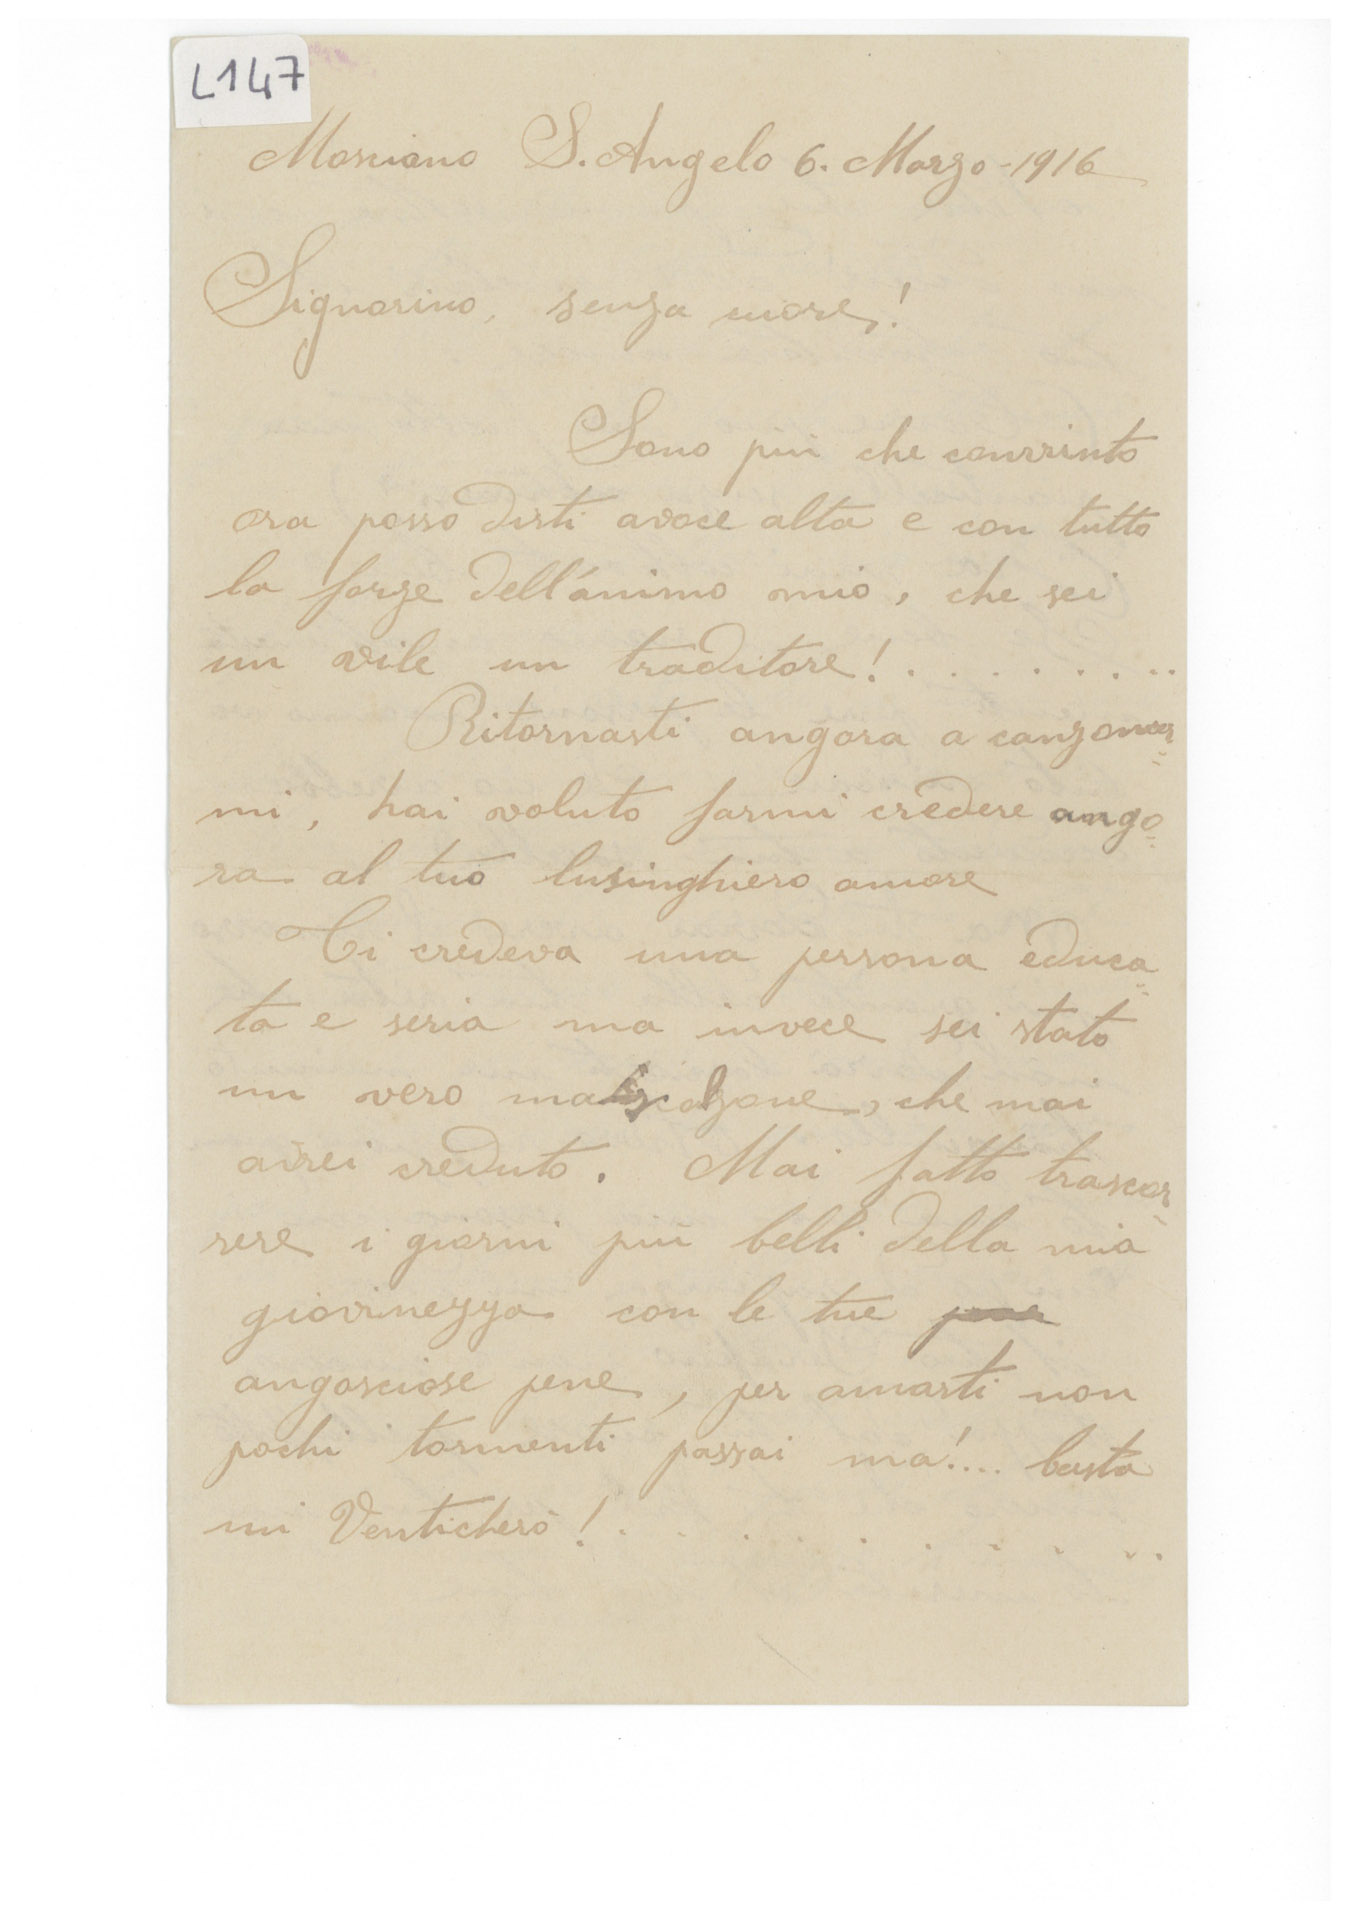 L147
Mosciano S. Angelo 6. Marzo-1916
Signorino, senza cuore!
Sono più che convinto
ora posso dirti avoce alta e con tutto
la forze dell'animo mio, che sei
un vile un traditore! . . . . . . . .
Ritornasti angora a canzonar
mi, hai voluto farmi credere ango
ra al tuo lusinghiero amore
Ti credeva una persona educa
ta e seria ma invece sei stato
un vero malscalzone, che mai
avrei creduto. Mai fatto trascor
rere i giorni più belli della mia
giovinezza con le tue pene
angosciose pene, per amarti non
pochi tormenti passai ma!.... basta
mi Venticherò! . . . . . . . . . .